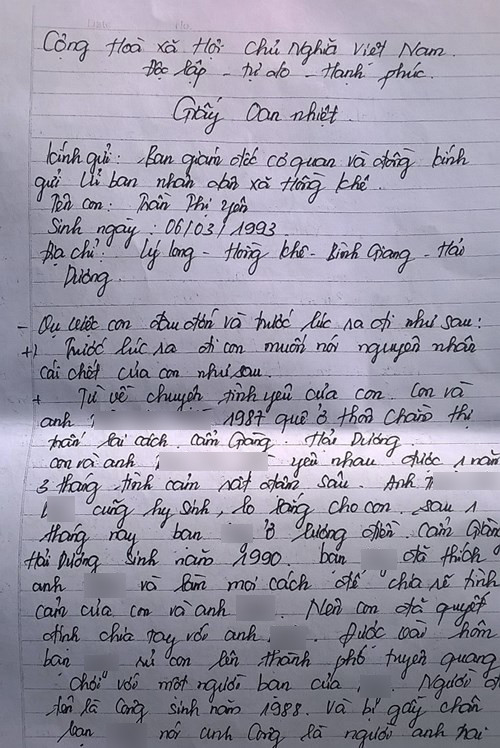 Cộng Hoà xã Hội Chủ Nghĩa Việt Nam.
Độc lập - tự do - Hạnh phúc.
Giấy Oan nhiệt.
kính gửi: Ban giám đốc cơ quan và đồng kính
gửi Uỉ ban nhân dân xã Hồng khê.
Tên con: Trần Thị Yên
Sinh ngày: 06/03/1993
Địa chỉ: Lý long - Hồng khê - Bình Giang - Hải
Dương.
- con đau đớn và trước lúc ra đi như sau:
+) Trước lúc ra đi con muốn nói nguyên nhân
cái chết của con như sau.
+ Từ về chuyện tình yêu của con. Con và
anh 1987 quê ở thôn Chanh thị
trấn lai cách. Cẩm Giang. Hải Dương.
con và anh yêu nhau được 1 năm
3 tháng tình cảm rất đậm sâu. Anh T
cũng hy sinh, lo lắng cho con. sau 1
tháng nay bạn ở lương điền Cẩm Giàng
Hải Dương sinh năm 1990. bạn đã thích
anh và làm mọi cách để "chia sẽ tình
cảm của con và anh . Nên con đã quyết
định chia tay với anh . Được vài hôm
bạn rủ con lên thành phố tuyên quang
chơi với một người bạn của . Người đó
tên là Công sinh năm 1988. Và bị gãy chân
bạn nói anh Công là người anh trai